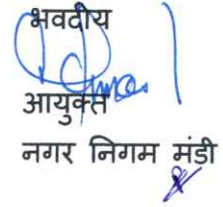 भवदीय
आयुक्त
नगर निगम मंडी